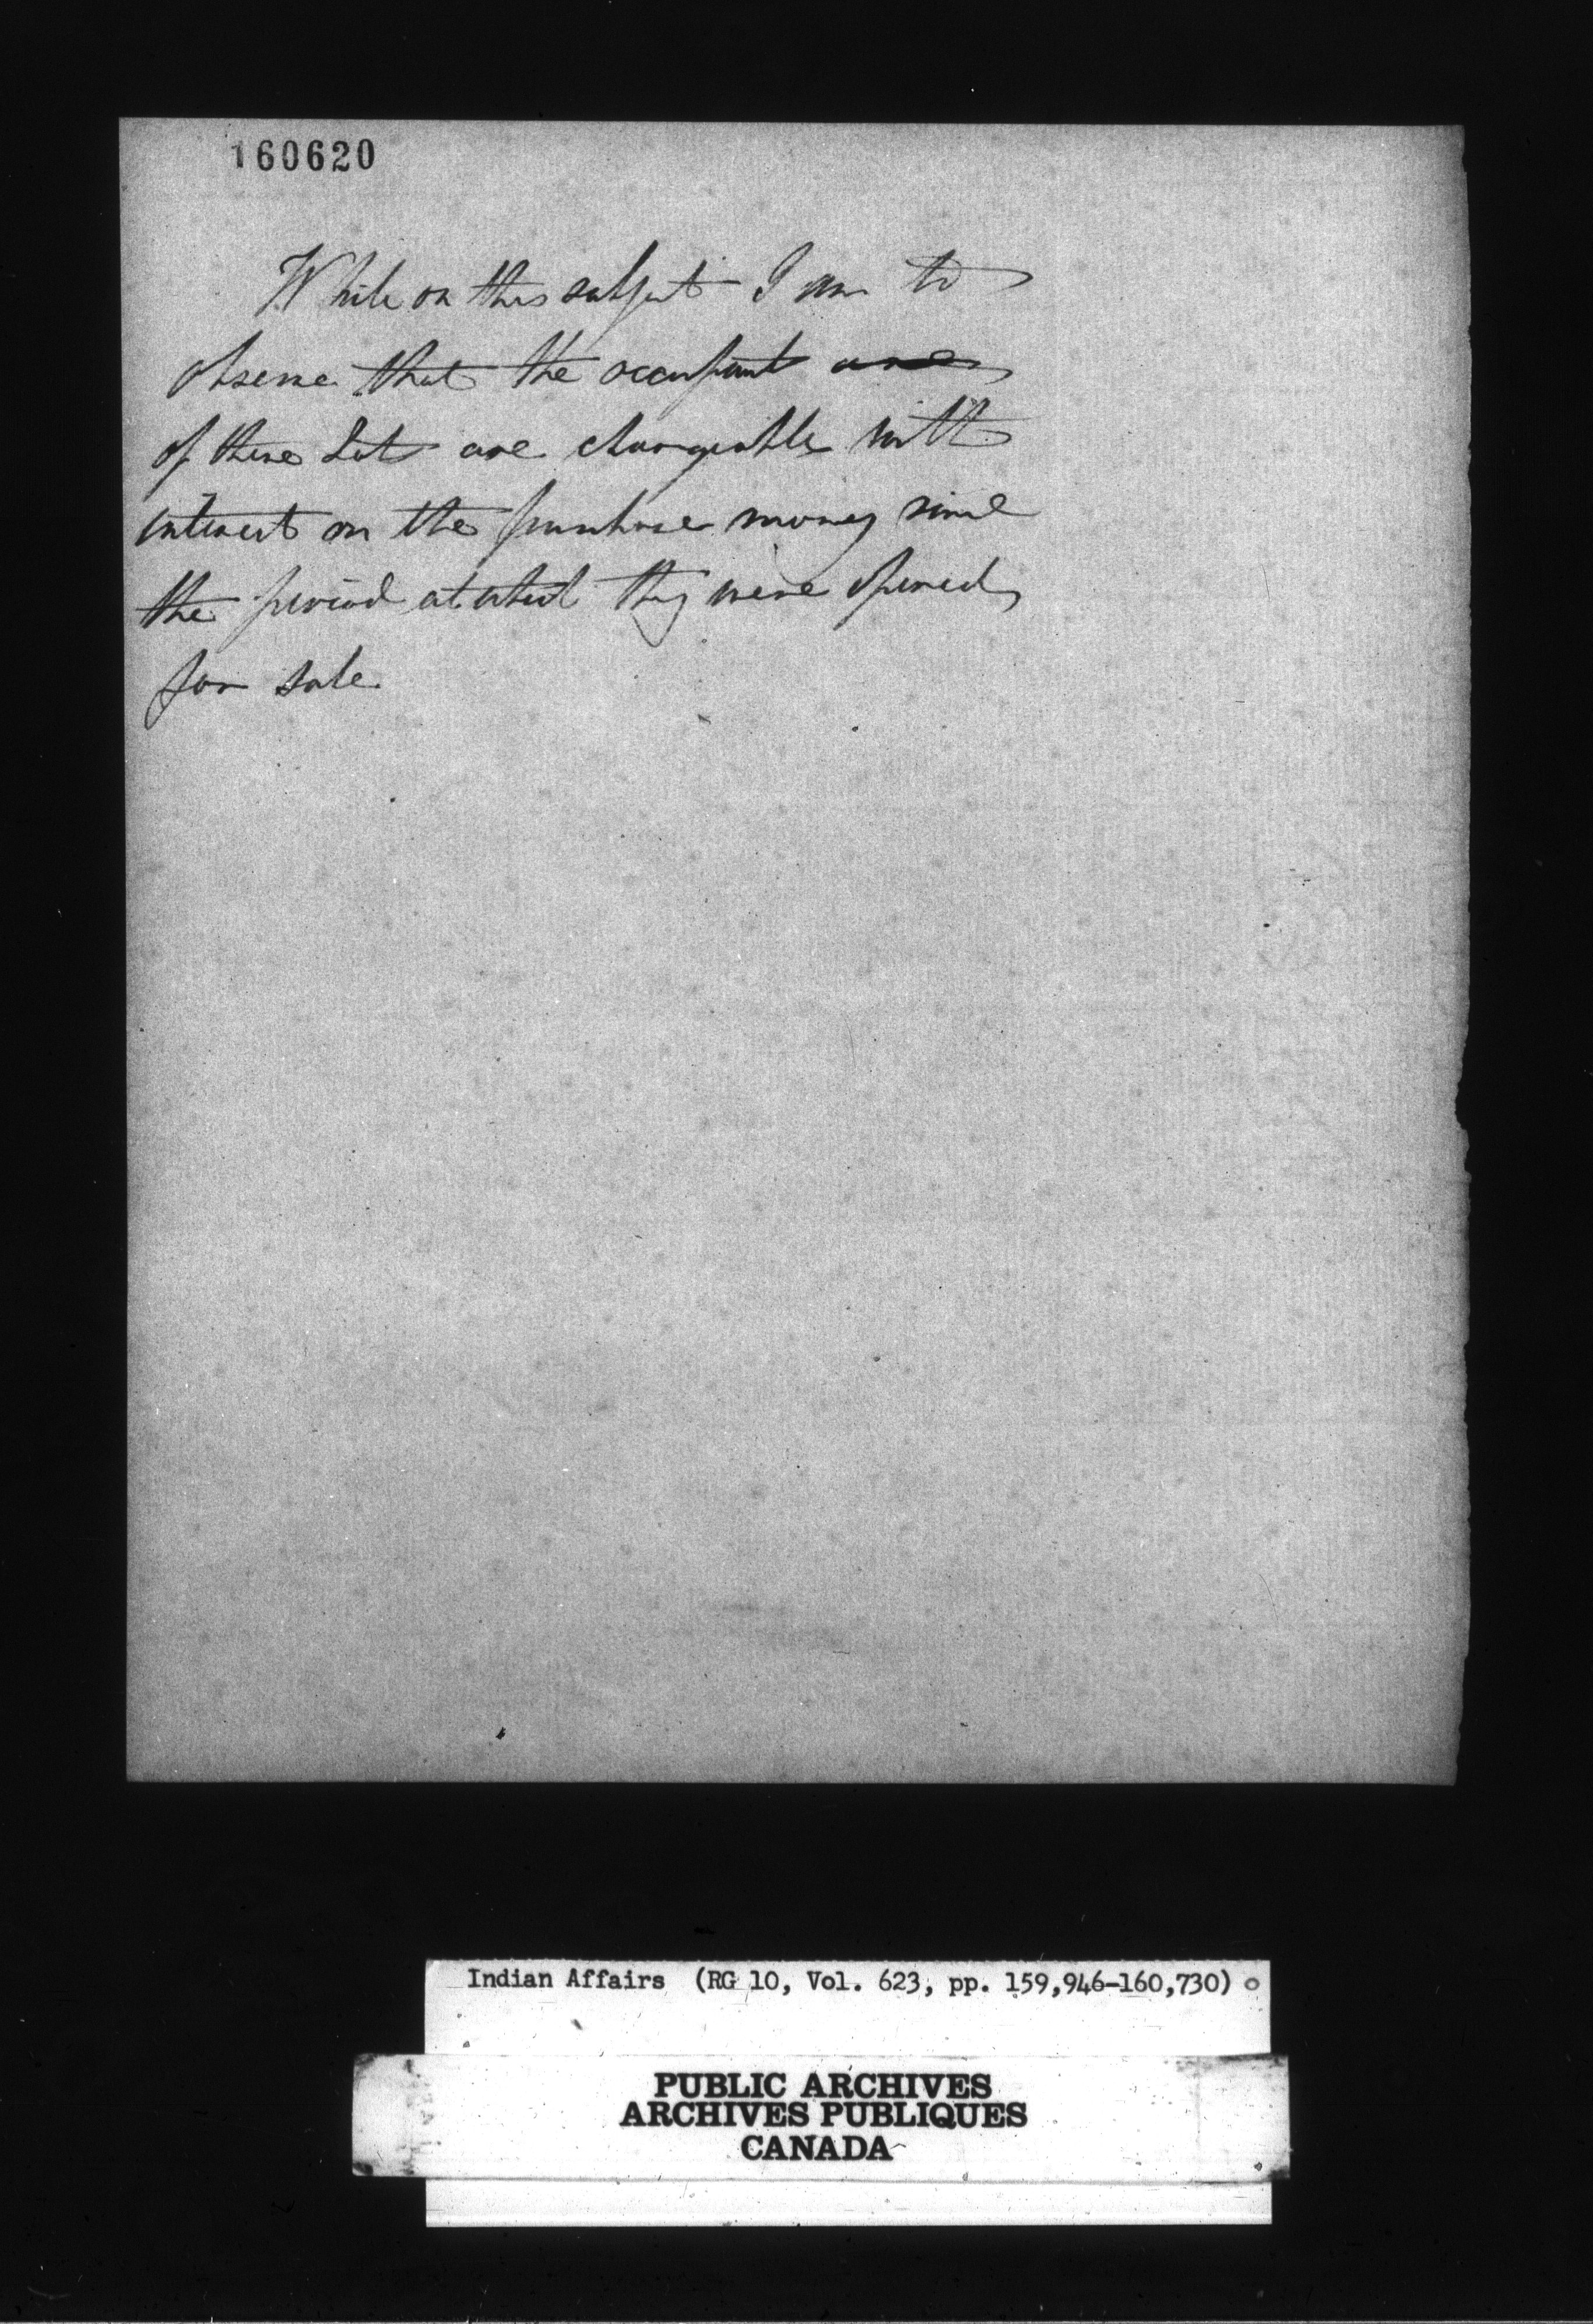 160620
While on this subject I am to
observe that the occupants are
of these Lots are chargeable with
interest on the purchase money since
the period at which they were opened
for sale
Indian Affairs (RG 10, Vol. 623, pp. 159,946-160,730)
PUBLIC ARCHIVES
ARCHIVES PUBLIQUES
CANADA